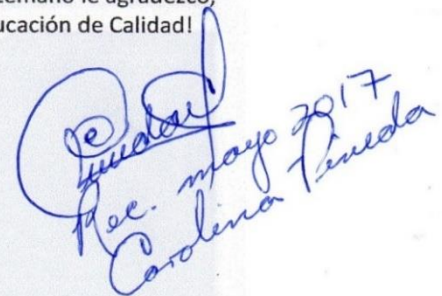 temano le agradezco,
ucación de Calidad!
Rec. mayo 2017
Carolina Pineda